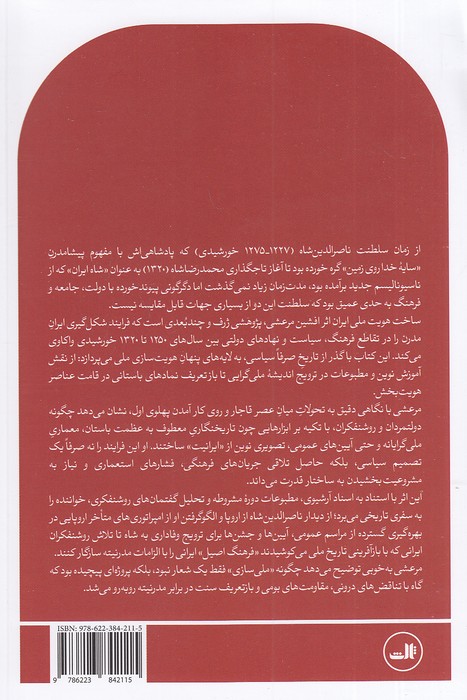 از زمان سلطنت ناصرالدین‌شاه (۱۲۲۷ـ۱۲۷۵ خورشیدی) که پادشاهی‌اش با مفهوم پیشامدرن
«سایهٔ خدا روی زمین» گره خورده بود تا آغاز تاجگذاری محمدرضاشاه (۱۳۲۰) به عنوان «شاه ایران» که از
ناسیونالیسم جدید برآمده بود، مدت‌زمان زیاد نمی‌گذشت اما دگرگونی پیوندخورده با دولت، جامعه و
فرهنگ به حدی عمیق بود که سلطنت این دو از بسیاری جهات قابل مقایسه نیست.
ساخت هویت ملی ایران اثر افشین مرعشی، پژوهشی ژرف و چندبُعدی است که فرایند شکل‌گیری ایرانِ
مدرن را در تقاطع فرهنگ، سیاست و نهادهای دولتی بین سال‌های ۱۲۵۰ تا ۱۳۲۰ خورشیدی واکاوی
می‌کند. این کتاب با گذر از تاریخِ صرفاً سیاسی، به لایه‌های پنهان هویت‌سازی ملی می‌پردازد: از نقش
آموزش نوین و مطبوعات در ترویج اندیشهٔ ملی‌گرایی تا بازتعریف نمادهای باستانی در قامت عناصر
هویت‌بخش.
مرعشی با نگاهی دقیق به تحولاتِ میانِ عصر قاجار و روی کار آمدن پهلوی اول، نشان می‌دهد چگونه
دولتمردان و روشنفکران، با تکیه بر ابزارهایی چون تاریخنگاریِ معطوف به عظمت باستان، معماریِ
ملی‌گرایانه و حتی آیین‌های عمومی، تصویری نوین از «ایرانیت» ساختند. او این فرایند را نه صرفاً یک
تصمیم سیاسی، بلکه حاصل تلاقی جریان‌های فرهنگی، فشارهای استعماری و نیاز به
مشروعیت بخشیدن به ساختار قدرت می‌داند.
این اثر با استناد به اسناد آرشیوی، مطبوعات دورهٔ مشروطه و تحلیل گفتمان‌های روشنفکری، خواننده را
به سفری تاریخی می‌برد؛ از دیدار ناصرالدین‌شاه از اروپا و الگوگرفتن او از امپراتوری‌های متأخر اروپایی در
بهره‌گیری گسترده از مراسم عمومی، آیین‌ها و جشن‌ها برای ترویج وفاداری به شاه تا تلاش روشنفکران
ایرانی که با بازآفرینی تاریخ ملی می‌کوشیدند «فرهنگ اصیل» ایرانی را با الزامات مدرنیته سازگار کنند.
مرعشی به‌خوبی توضیح می‌دهد چگونه «ملی‌سازی» فقط یک شعار نبود، بلکه پروژه‌ای پیچیده بود که
گاه با تناقض‌های درونی، مقاومت‌های بومی و بازتعریف سنت در برابر مدرنیته روبه‌رو می‌شد.
ISBN: 978-622-384-211-5
9 786223 842115
ثالث